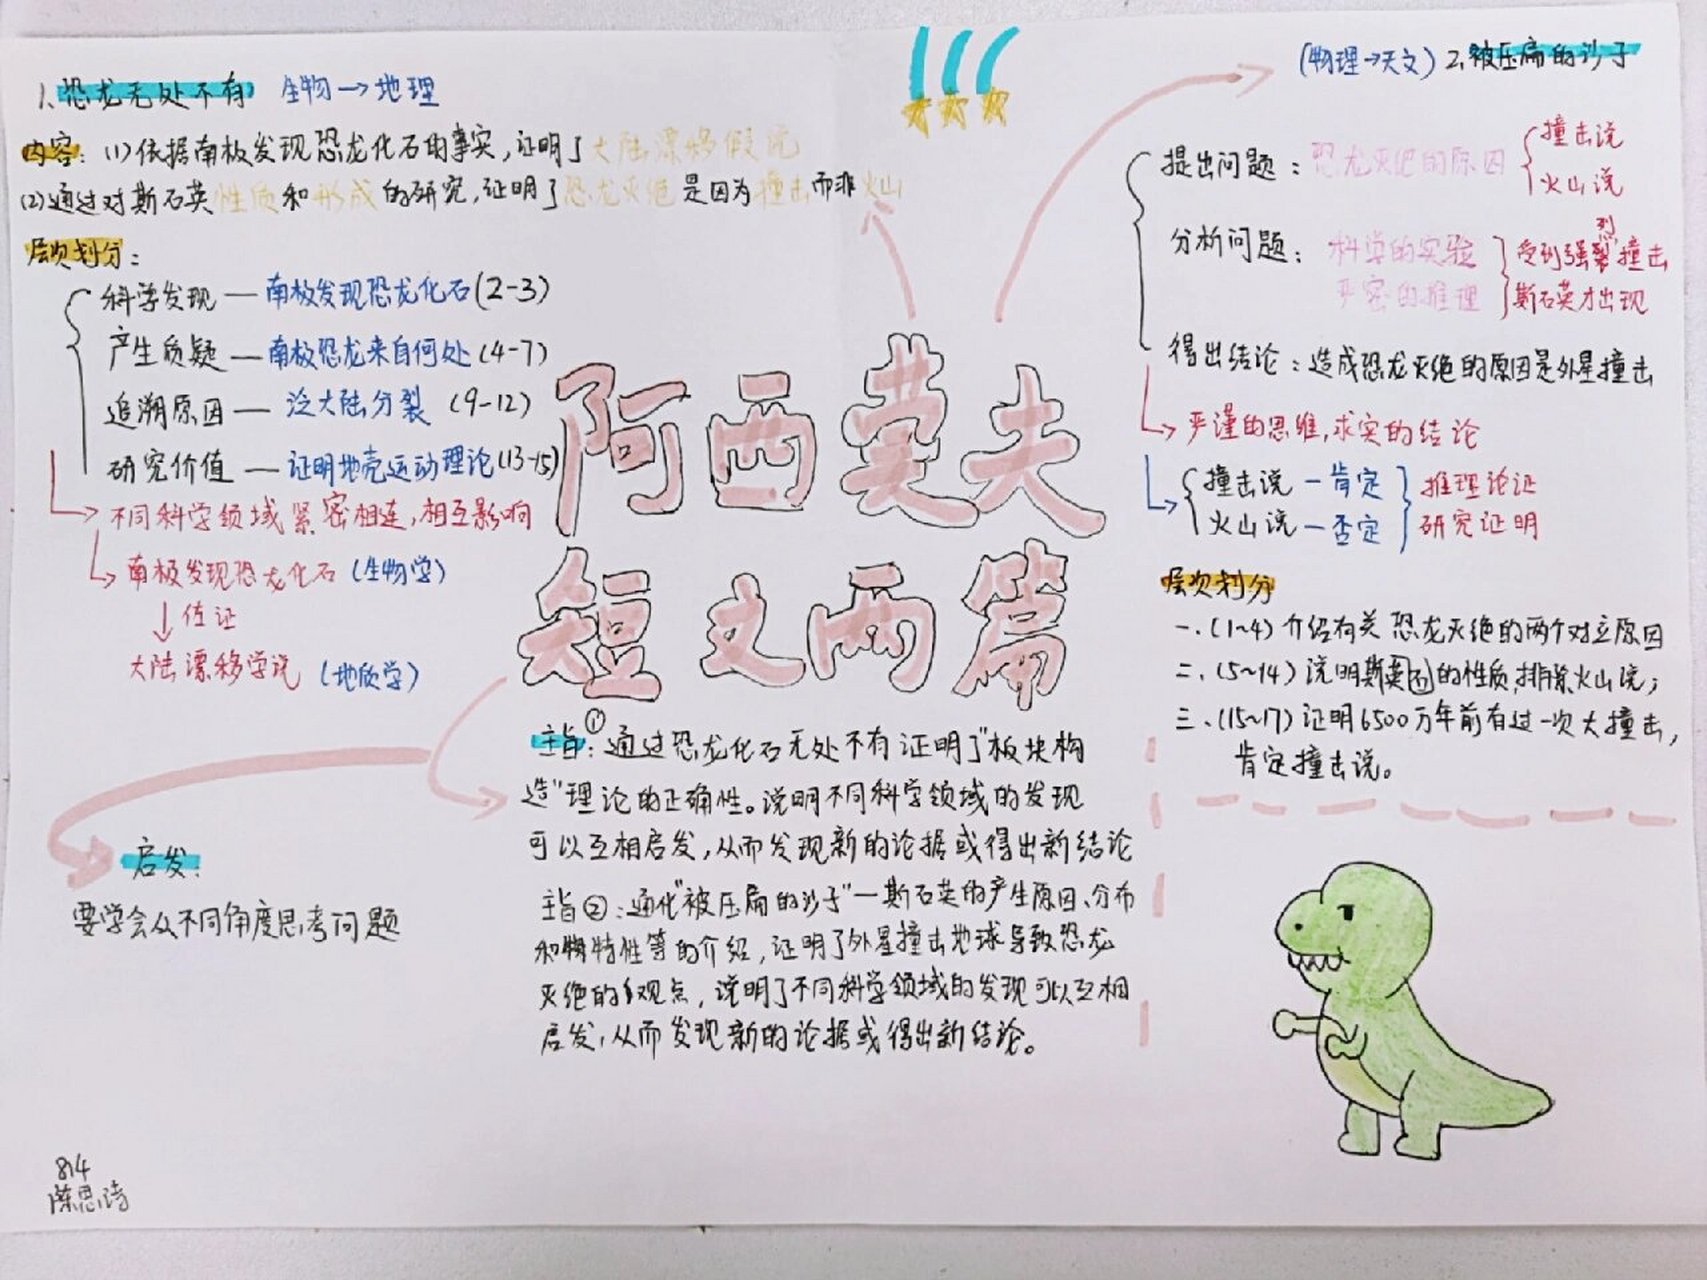 1、恐龙无处不有 生物→地理
内容：(1)依据南极发现恐龙化石的事实,证明了大陆漂移假说
(2)通过对斯石英性质和形成的研究,证明了恐龙灭绝是因为撞击而非火山
层次划分：
科学发现—南极发现恐龙化石(2-3)
产生质疑—南极恐龙来自何处(4-7)
追溯原因—泛大陆分裂(9-12)
研究价值—证明地壳运动理论(13-15)
不同科学领域紧密相连,相互影响
南极发现恐龙化石(生物学)
↓佐证
大陆漂移学说(地质学)
启发：
要学会从不同角度思考问题
814
陈思诗
阿西莫夫
短文两篇
主旨①：通过恐龙化石无处不有证明了"板块构
造"理论的正确性。说明不同科学领域的发现
可以互相启发,从而发现新的论据或得出新结论
主旨②：通化"被压扁的沙子"—斯石英的产生原因、分布
和特性等的介绍,证明了外星撞击地球导致恐龙
灭绝的观点,说明了不同科学领域的发现可以互相
启发,从而发现新的论据或得出新结论。
(物理→天文)2、被压扁的沙子
提出问题：恐龙灭绝的原因
撞击说
火山说
分析问题：科学的实验
严密的推理
受到强烈撞击
斯石英才出现
得出结论：造成恐龙灭绝的原因是外星撞击
严谨的思维,求实的结论
撞击说—肯定
火山说—否定
推理论证
研究证明
层次划分
一、(1~4)介绍有关恐龙灭绝的两个对立原因
二、(5~14)说明斯石英的性质,排除火山说；
三、(15~17)证明6500万年前有过一次大撞击,
肯定撞击说。